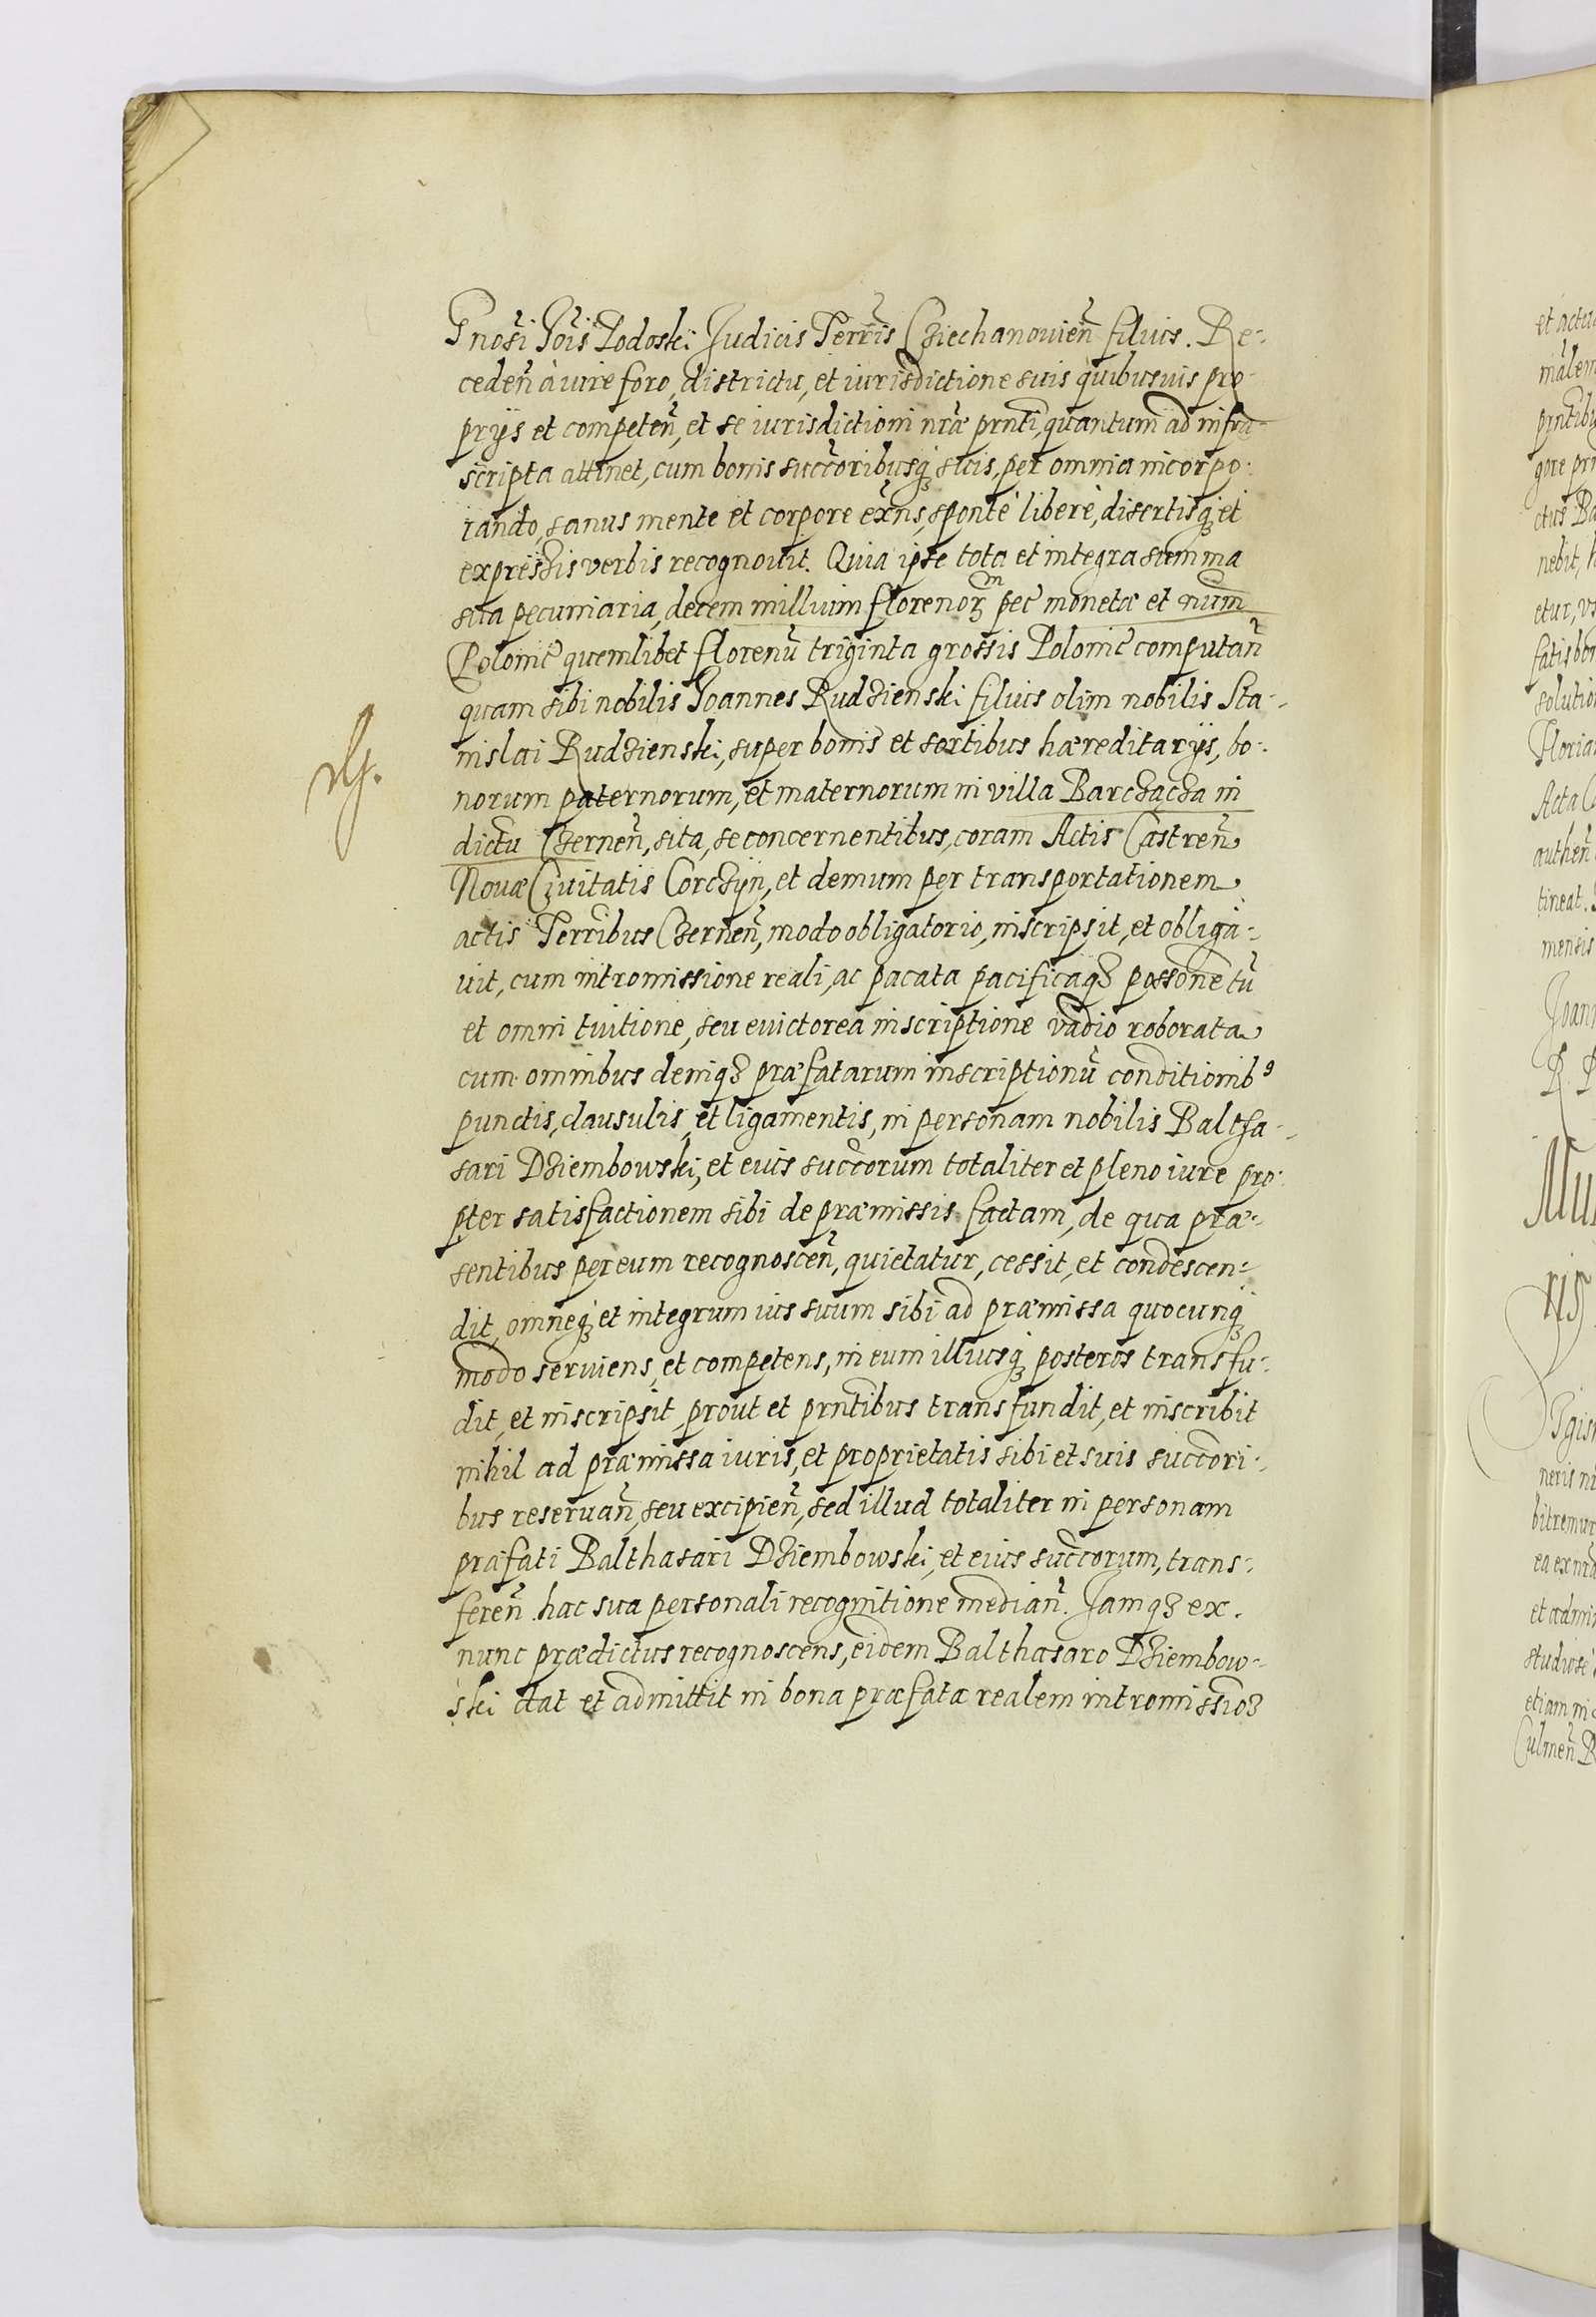 Gnosi Jois Podoski Judicis Terris Cziechanouien̄ filius. Re-
ceden̄ à iure foro, districtu, et iurisdictione suis quibusuis pro-
prijs et competen̄, et se iurisdictioni nr̄æ prn̄ti, quantum ad infra-
scripta attinet, cum bonis succ̄oribusq; suis, per omnia incorpo-
rando, sanus mente et corpore ex̄ns, sponte libere, disertisq; et
expressis verbis recognouit. Quia ipse tota et integra summa
sua pecuniaria, decem millium florenorꝫ pec̄ monetæ et num̄
Polonic̄ quemlibet florenū triginta grossis Polonic̄ computan̄
quam sibi nobilis Joannes Rudzienski filius olim nobilis Sta-
nislai Rudzienski, super bonis et sortibus hæreditarijs, bo-
norum paternorum, et maternorum in villa Barczącza in
dictu Czernen̄, sita, se concernentibus, coram Actis Castren̄
Nouæ Ciuitatis Corczÿn, et demum per transportationem
actis Terribus Czernen̄, modo obligatorio, inscripsit, et obliga-
uit, cum intromissione reali, ac pacata pacificaqꝫ possone tū
et omni tuitione, seu euictorea inscriptione vadio roborata
cum omnibus deniqꝫ præfatarum inscriptionū conditionibꝯ
punctis, clausulis, et ligamentis, in personam nobilis Baltha-
sari Dziembowski, et eius succ̄orum totaliter et pleno iure pro-
pter satisfactionem sibi de præmissis factam, de qua præ-
sentibus per eum recognoscen̄, quietatur, cessit, et condescen-
dit, omneq; et integrum ius suum sibi ad præmissa quocunq;
modo seruiens, et competens, in eum illiusq; posteros transfu-
dit, et inscripsit, prout et prn̄tibus transfundit, et inscribit
nihil ad præmissa iuris, et proprietatis sibi et suis succ̄ori-
bus reseruan̄, seu excipien̄, sed illud totaliter in personam
præfati Balthasari Dziembowski, et eius succ̄orum, trans-
feren̄ hac sua personali recognitione median̄. Jamqꝫ ex
nunc prædictus recognoscens, eidem Balthasaro Dziembow-
ski dat et admittit in bona præfata realem intromissioꝫ